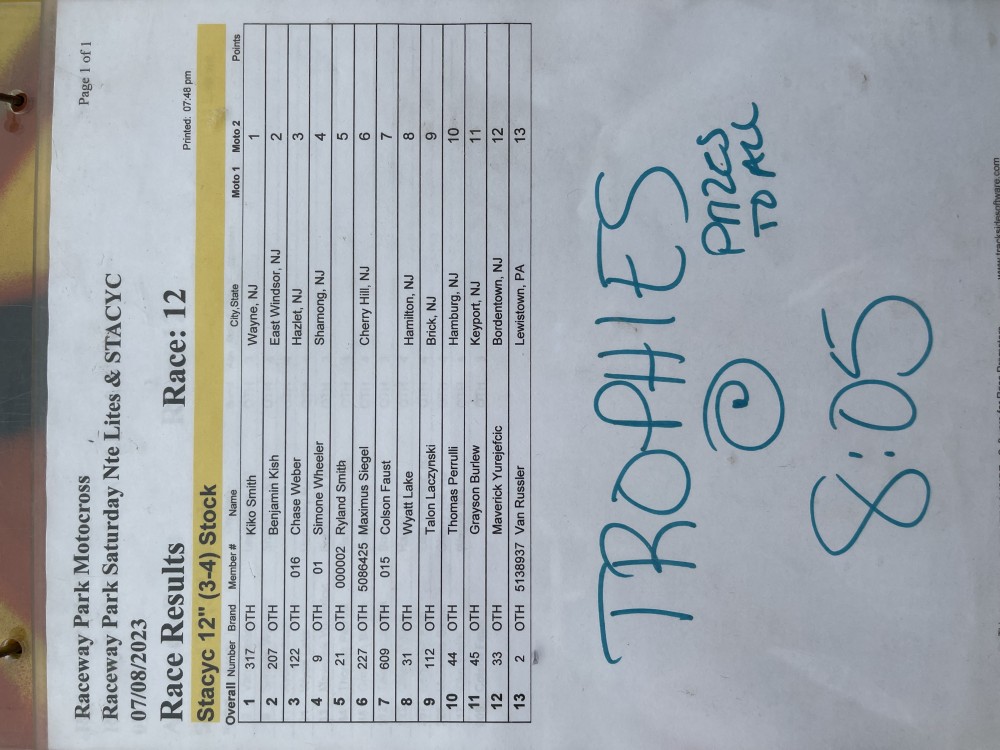 Raceway Park Motocross Page 1 of 1
Raceway Park Saturday Nte Lites & STACYC
07/08/2023
Race Results Race: 12 Printed: 07:48 pm
Stacyc 12" (3-4) Stock
Overall Number Brand Member # Name City,State Moto 1 Moto 2 Points
1 317 OTH Kiko Smith Wayne, NJ 1
2 207 OTH Benjamin Kish East Windsor, NJ 2
3 122 OTH 016 Chase Weber Hazlet, NJ 3
4 9 OTH 01 Simone Wheeler Shamong, NJ 4
5 21 OTH 000002 Ryland Smith 5
6 227 OTH 5086425 Maximus Siegel Cherry Hill, NJ 6
7 609 OTH 015 Colson Faust 7
8 31 OTH Wyatt Lake Hamilton, NJ 8
9 112 OTH Talon Laczynski Brick, NJ 9
10 44 OTH Thomas Perrulli Hamburg, NJ 10
11 45 OTH Grayson Burlew Keyport, NJ 11
12 33 OTH Maverick Yurejefcic Bordentown, NJ 12
13 2 OTH 5138937 Van Russler Lewistown, PA 13
TROPHIES
PRIZES
TO ALL
@
8:05